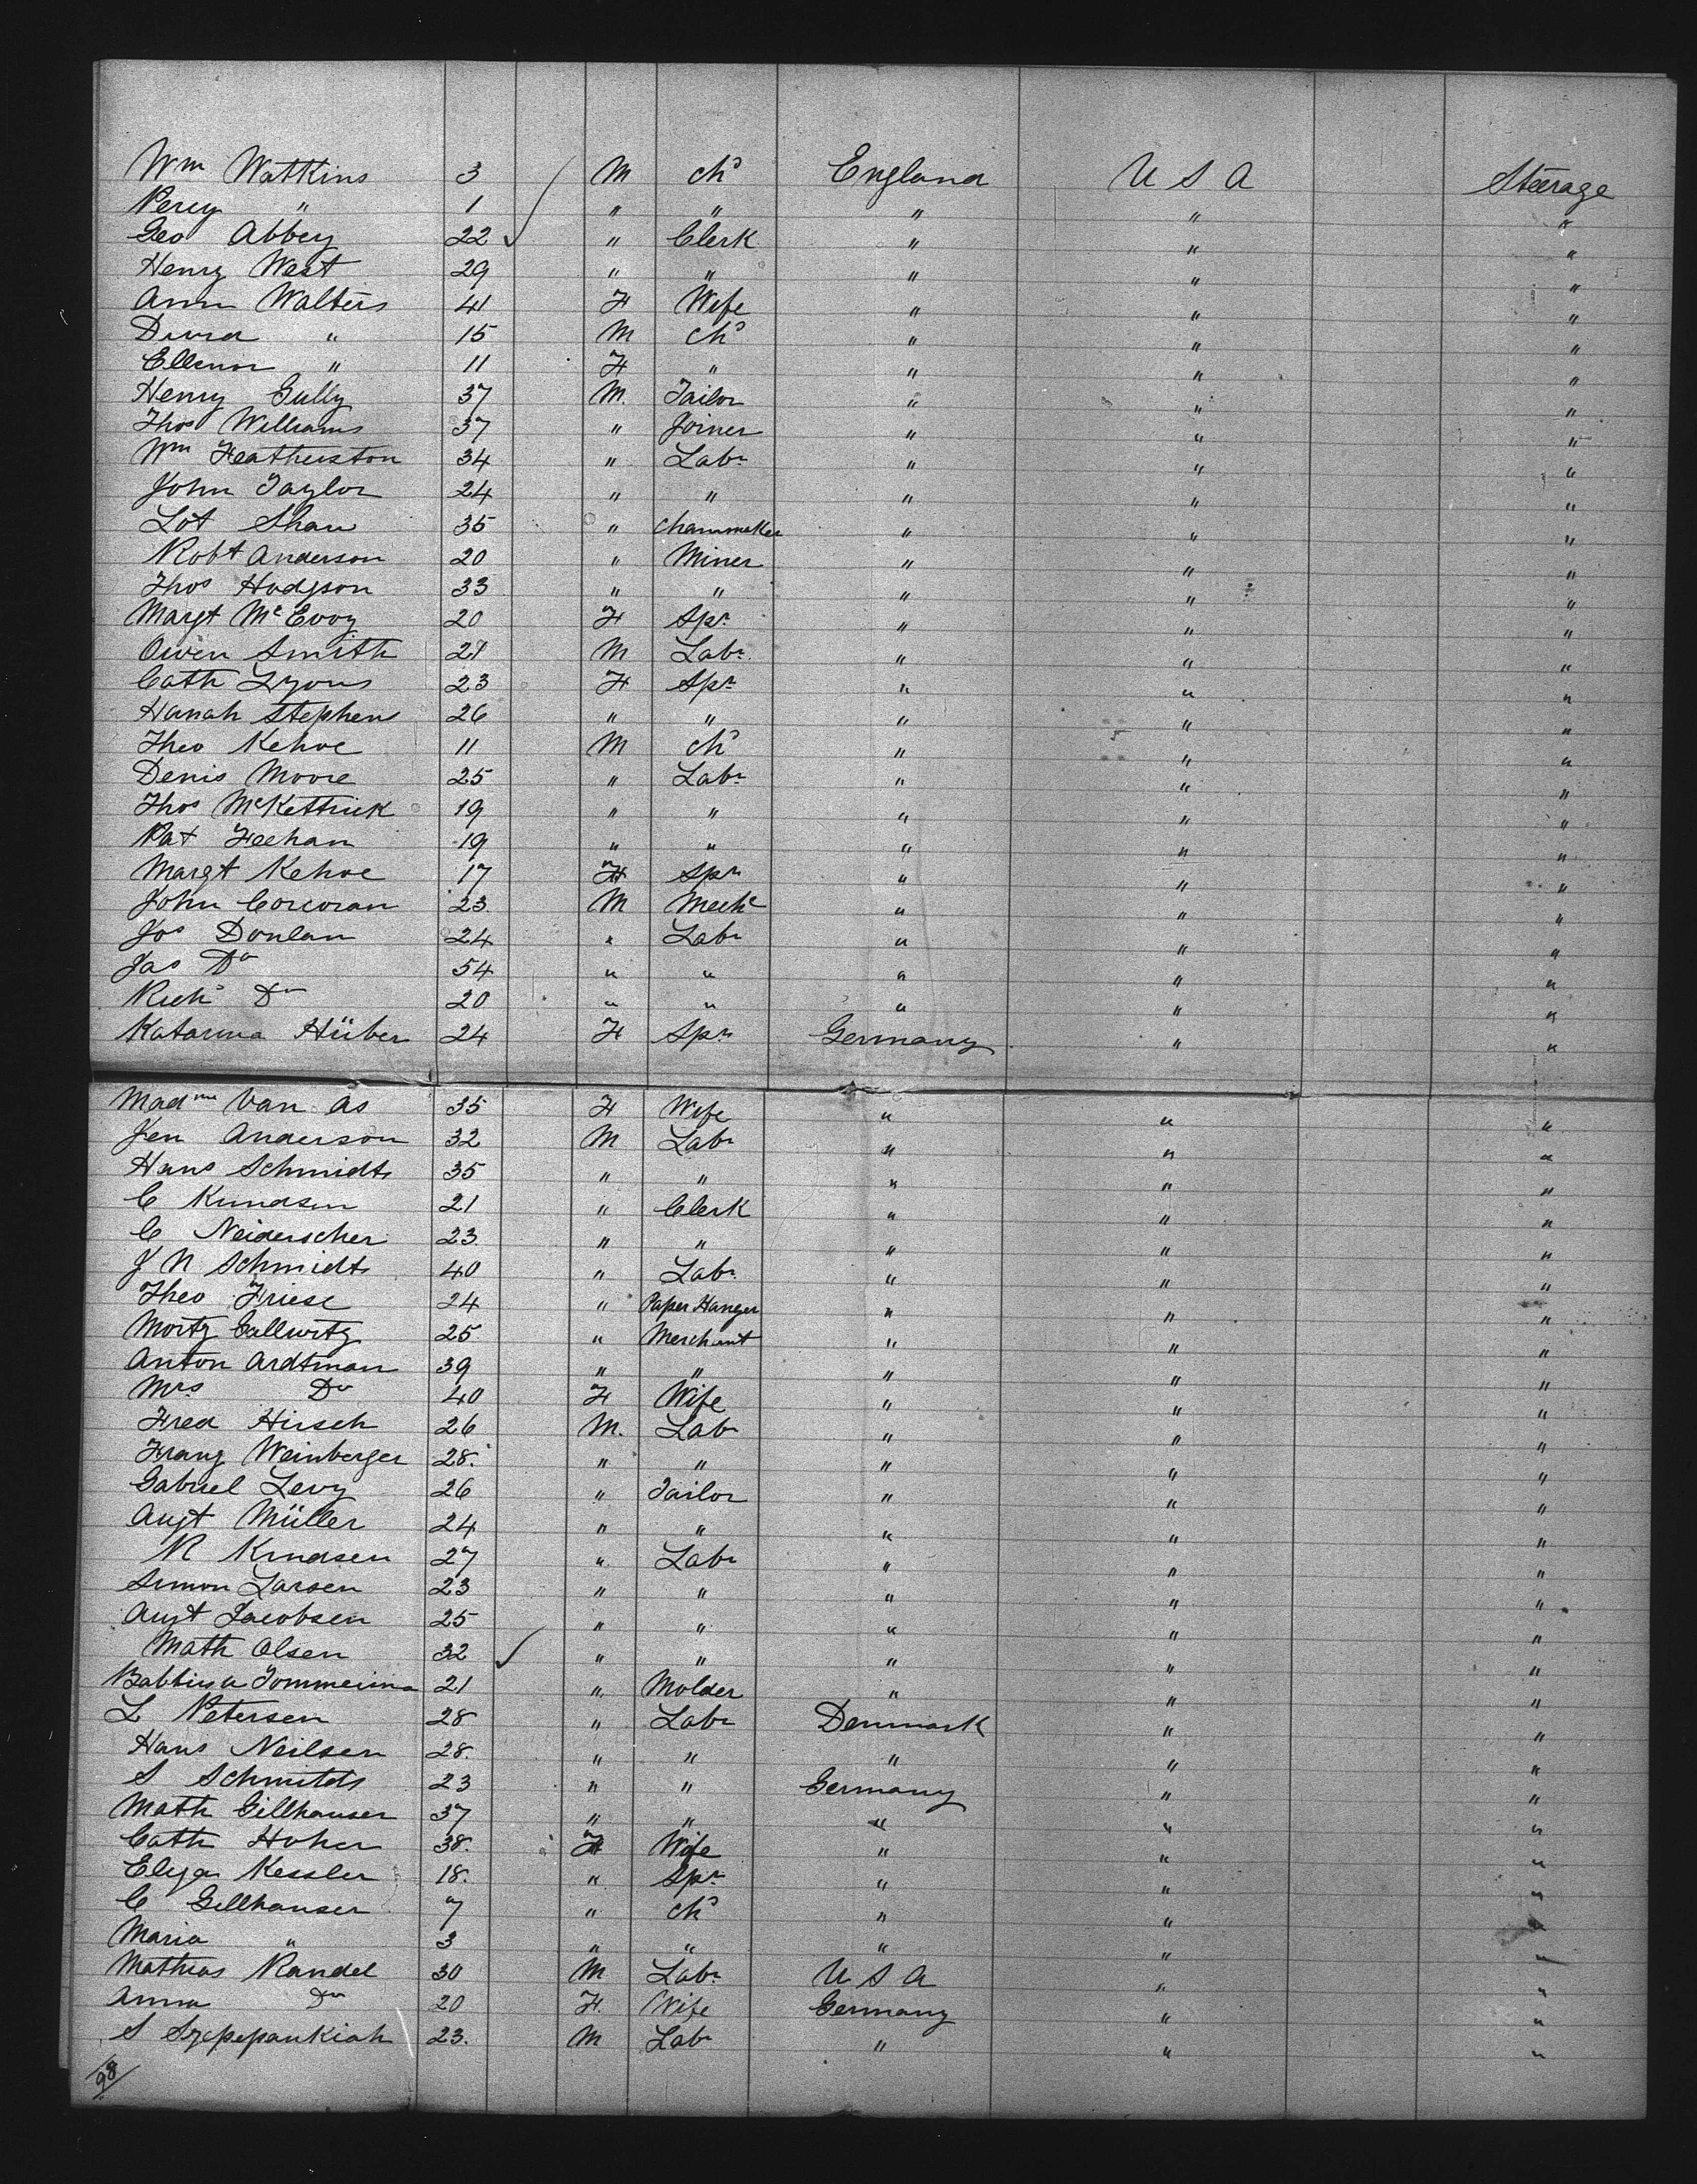 Wm Watkins 3 M chd England U S A Steerage
Percy " 1 " " " " "
Geo Abbey 22 " Clerk " " "
Henry West 29 " " " " "
Ann Walters 41 F Wife " " "
David " 15 M chd " " "
Ellenor " 11 F " " " "
Henry Gully 37 M. Tailor " " "
Thos Williams 37 " Joiner " " "
Wm Featherston 34 " Labr " " "
John Taylor 24 " " " " "
Lot Shaw 35 " Chainmaker " " "
Robt Anderson 20 " Miner " " "
Thos Hodgson 33 " " " " "
Margt McEvoy 20 F Spr " " "
Owen Smith 21 M Labr " " "
Cath Lyons 23 F Spr " " "
Hanah Stephens 26 " " " " "
Theo Kehoe 11 M chd " " "
Denis Moore 25 " Labr " " "
Thos McKettrick 19 " " " " "
Pat Feehan 19 " " " " "
Margt Kehoe 17 F Spr " " "
John Corcoran 23. M Mechc " " "
Jos Donlan 24 " Labr " " "
Jas Do 54 " " " " "
Richd Do 20 " " " " "
Katarina Hüber 24 F Spr Germany " "
Madme Van As 35 F Wife " " "
Jen Anderson 32 M Labr " " "
Hans Schmidt 35 " " " " "
C Knudsen 21 " Clerk " " "
C Neiderscher 23. " " " " "
J N Schmidt 40 " Labr " " "
Theo Friese 24 " Paper Hanger " " "
Moritz Gallwitz 25 " Merchant " " "
Anton Ardtman 39 " " " " "
Mrs Do 40 F Wife " " "
Fred Hirsch 26 M. Labr " " "
Franz Weinberger 28. " " " " "
Gabriel Levy 26 " Tailor " " "
Augt Müller 24 " " " " "
R Knudsen 27 " Labr " " "
Simon Larsen 23 " " " " "
Augt Jacobsen 25 " " " " "
Math Olsen 32 " " " " "
Tommerina 21 " Molder " " "
L Petersen 28 " Labr Denmark " "
Hans Neilsen 28. " " " " "
S Schmidt 23 " " Germany " "
Math Gillhauser 37 " " " " "
Cath Hoher 38. F Wife " " "
Eliza Kessler 18. " Spr " " "
C Gillhauser 7 " chd " " "
Maria " 3 " " " " "
Mathias Randel 30 M Labr U S A " "
Anna Do 20 F. Wife Germany " "
S Szepepankiah 23. M Labr " " "
98